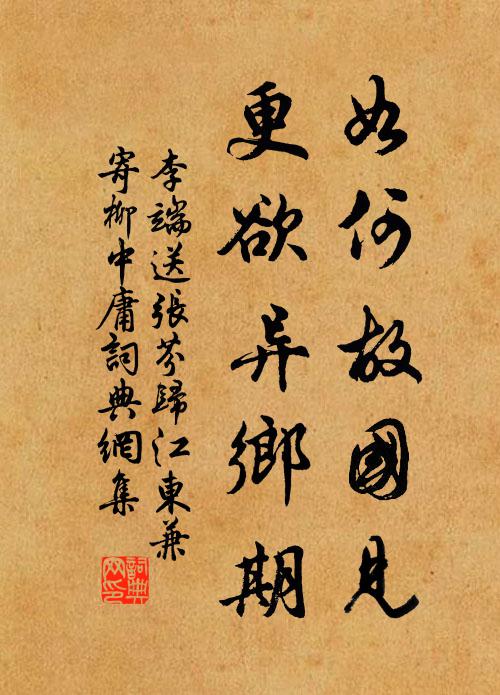 如何故國見
更欲异鄉期
李端送張芬歸江東兼
寄柳中庸詞典網集
詞典
网印